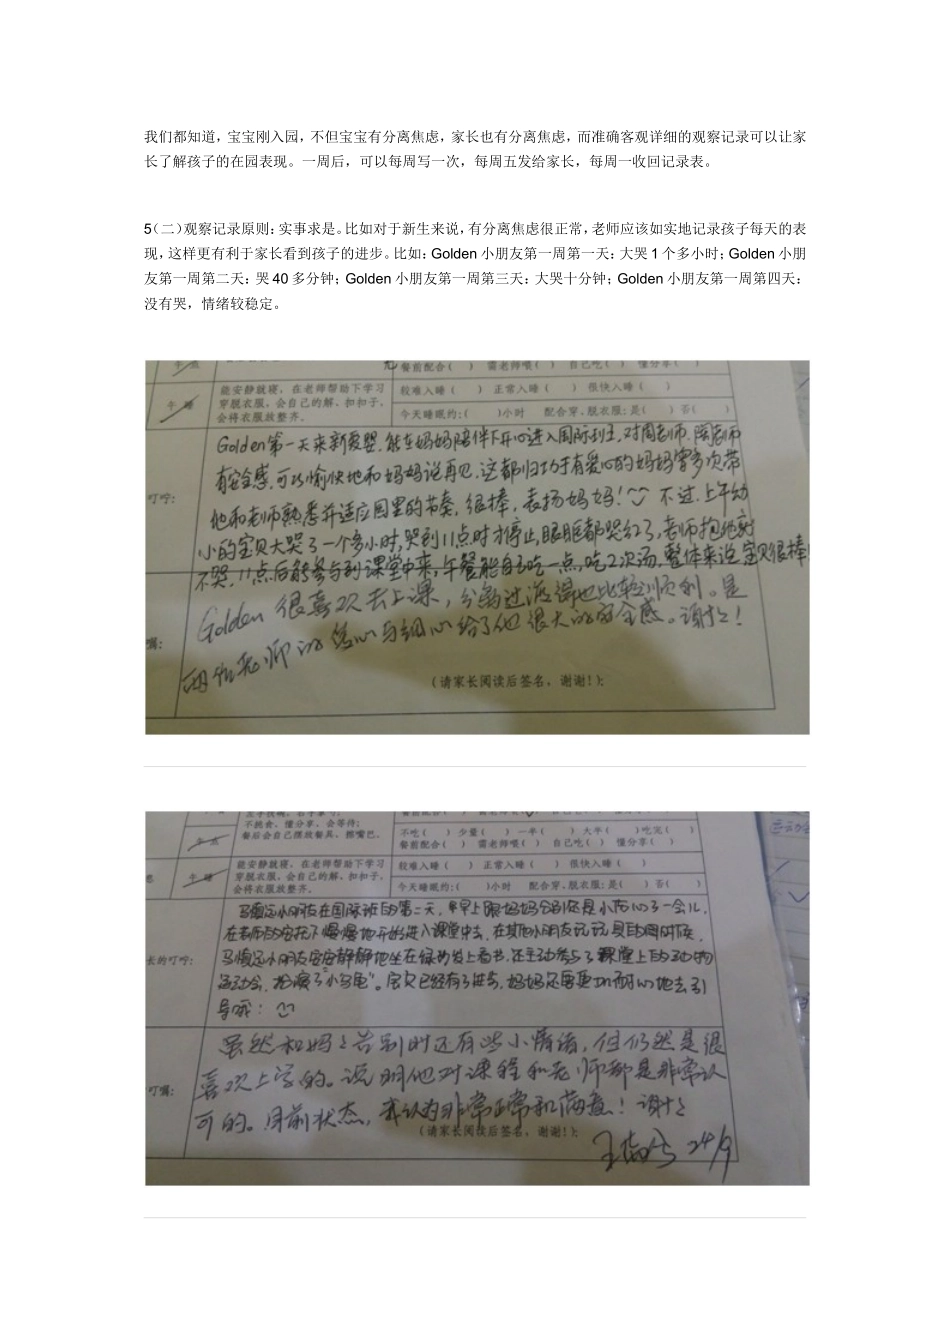 我们都知道，宝宝刚入园，不但宝宝有分离焦虑，家长也有分离焦虑，而准确客观详细的观察记录可以让家
长了解孩子的在园表现。一周后，可以每周写一次，每周五发给家长，每周一收回记录表。
5（二）观察记录原则：实事求是。比如对于新生来说，有分离焦虑很正常，老师应该如实地记录孩子每天的表
现，这样更有利于家长看到孩子的进步。比如：Golden 小朋友第一周第一天：大哭 1 个多小时；Golden 小朋
友第一周第二天：哭 40 多分钟；Golden 小朋友第一周第三天：大哭十分钟；Golden 小朋友第一周第四天：
没有哭，情绪较稳定。
午点
餐前配合（ ） 需老师喂（ ） 自己吃（ ） 懂分享（ ）
午睡
能安静就寝，在老师帮助下学习
穿脱衣服，会自己的解、扣扣子，
会将衣服放整齐。
较难入睡（ ） 正常入睡（ ） 很快入睡（ ）
今天睡眠约：（ ）小时 配合穿、脱衣服：是（ ）否（ ）
叮咛：
Golden第一天来新爱婴，能在妈妈陪伴下开心进入国际班，对周老师、陶老师
有安全感，可以愉快地和妈妈说再见，这都归功于有爱心的妈妈曾多次带
他和老师熟悉并适应园里的节奏，很棒，表扬妈妈！不过，上午幼
小的宝贝大哭了一个多小时，哭到11点时才停止，眼眶都哭红了，老师抱他就
不哭，11点后能参与到课堂中来，午餐能自主吃一点，吃2次汤，整体来说宝贝很棒
嘱：
Golden 很喜欢去上课，分离过渡得也比较顺利。是
两位老师的信心与细心给了他很大的安全感。谢谢！
（请家长阅读后签名，谢谢！）：
不挑食、懂分享、会等待；
餐后会自己摆放餐具、擦嘴巴。
午点
不吃（ ）少量（ ）一半（ ）大半（ ）吃完（ ）
餐前配合（ ） 需老师喂（ ） 自己吃（ ） 懂分享（ ）
午睡
能安静就寝，在老师帮助下学习
穿脱衣服，会自己的解、扣扣子，
会将衣服放整齐。
较难入睡（ ） 正常入睡（ ） 很快入睡（ ）
今天睡眠约：（ ）小时 配合穿、脱衣服：是（ ）否（ ）
长的叮咛：
小朋友在国际班的第二天，早上跟妈妈分别还是小伤心了一会儿，
在老师的安抚下慢慢地开始进入课堂中去，在其他小朋友玩玩具的同时候，
小朋友安安静静地坐在绿沙发上看书，还主动参与了课堂上的动物
运动会，扮演了“小乌龟”。宝贝已经有了进步，妈妈还需要耐心地去引
导哦：
叮嘱：
虽然和妈妈告别时还有些小情绪，但仍然是很
喜欢上学的。说明他对课程和老师都是非常认
可的。目前状态，我认为非常正常和满意！谢谢
（请家长阅读后签名，谢谢！）：
24/9